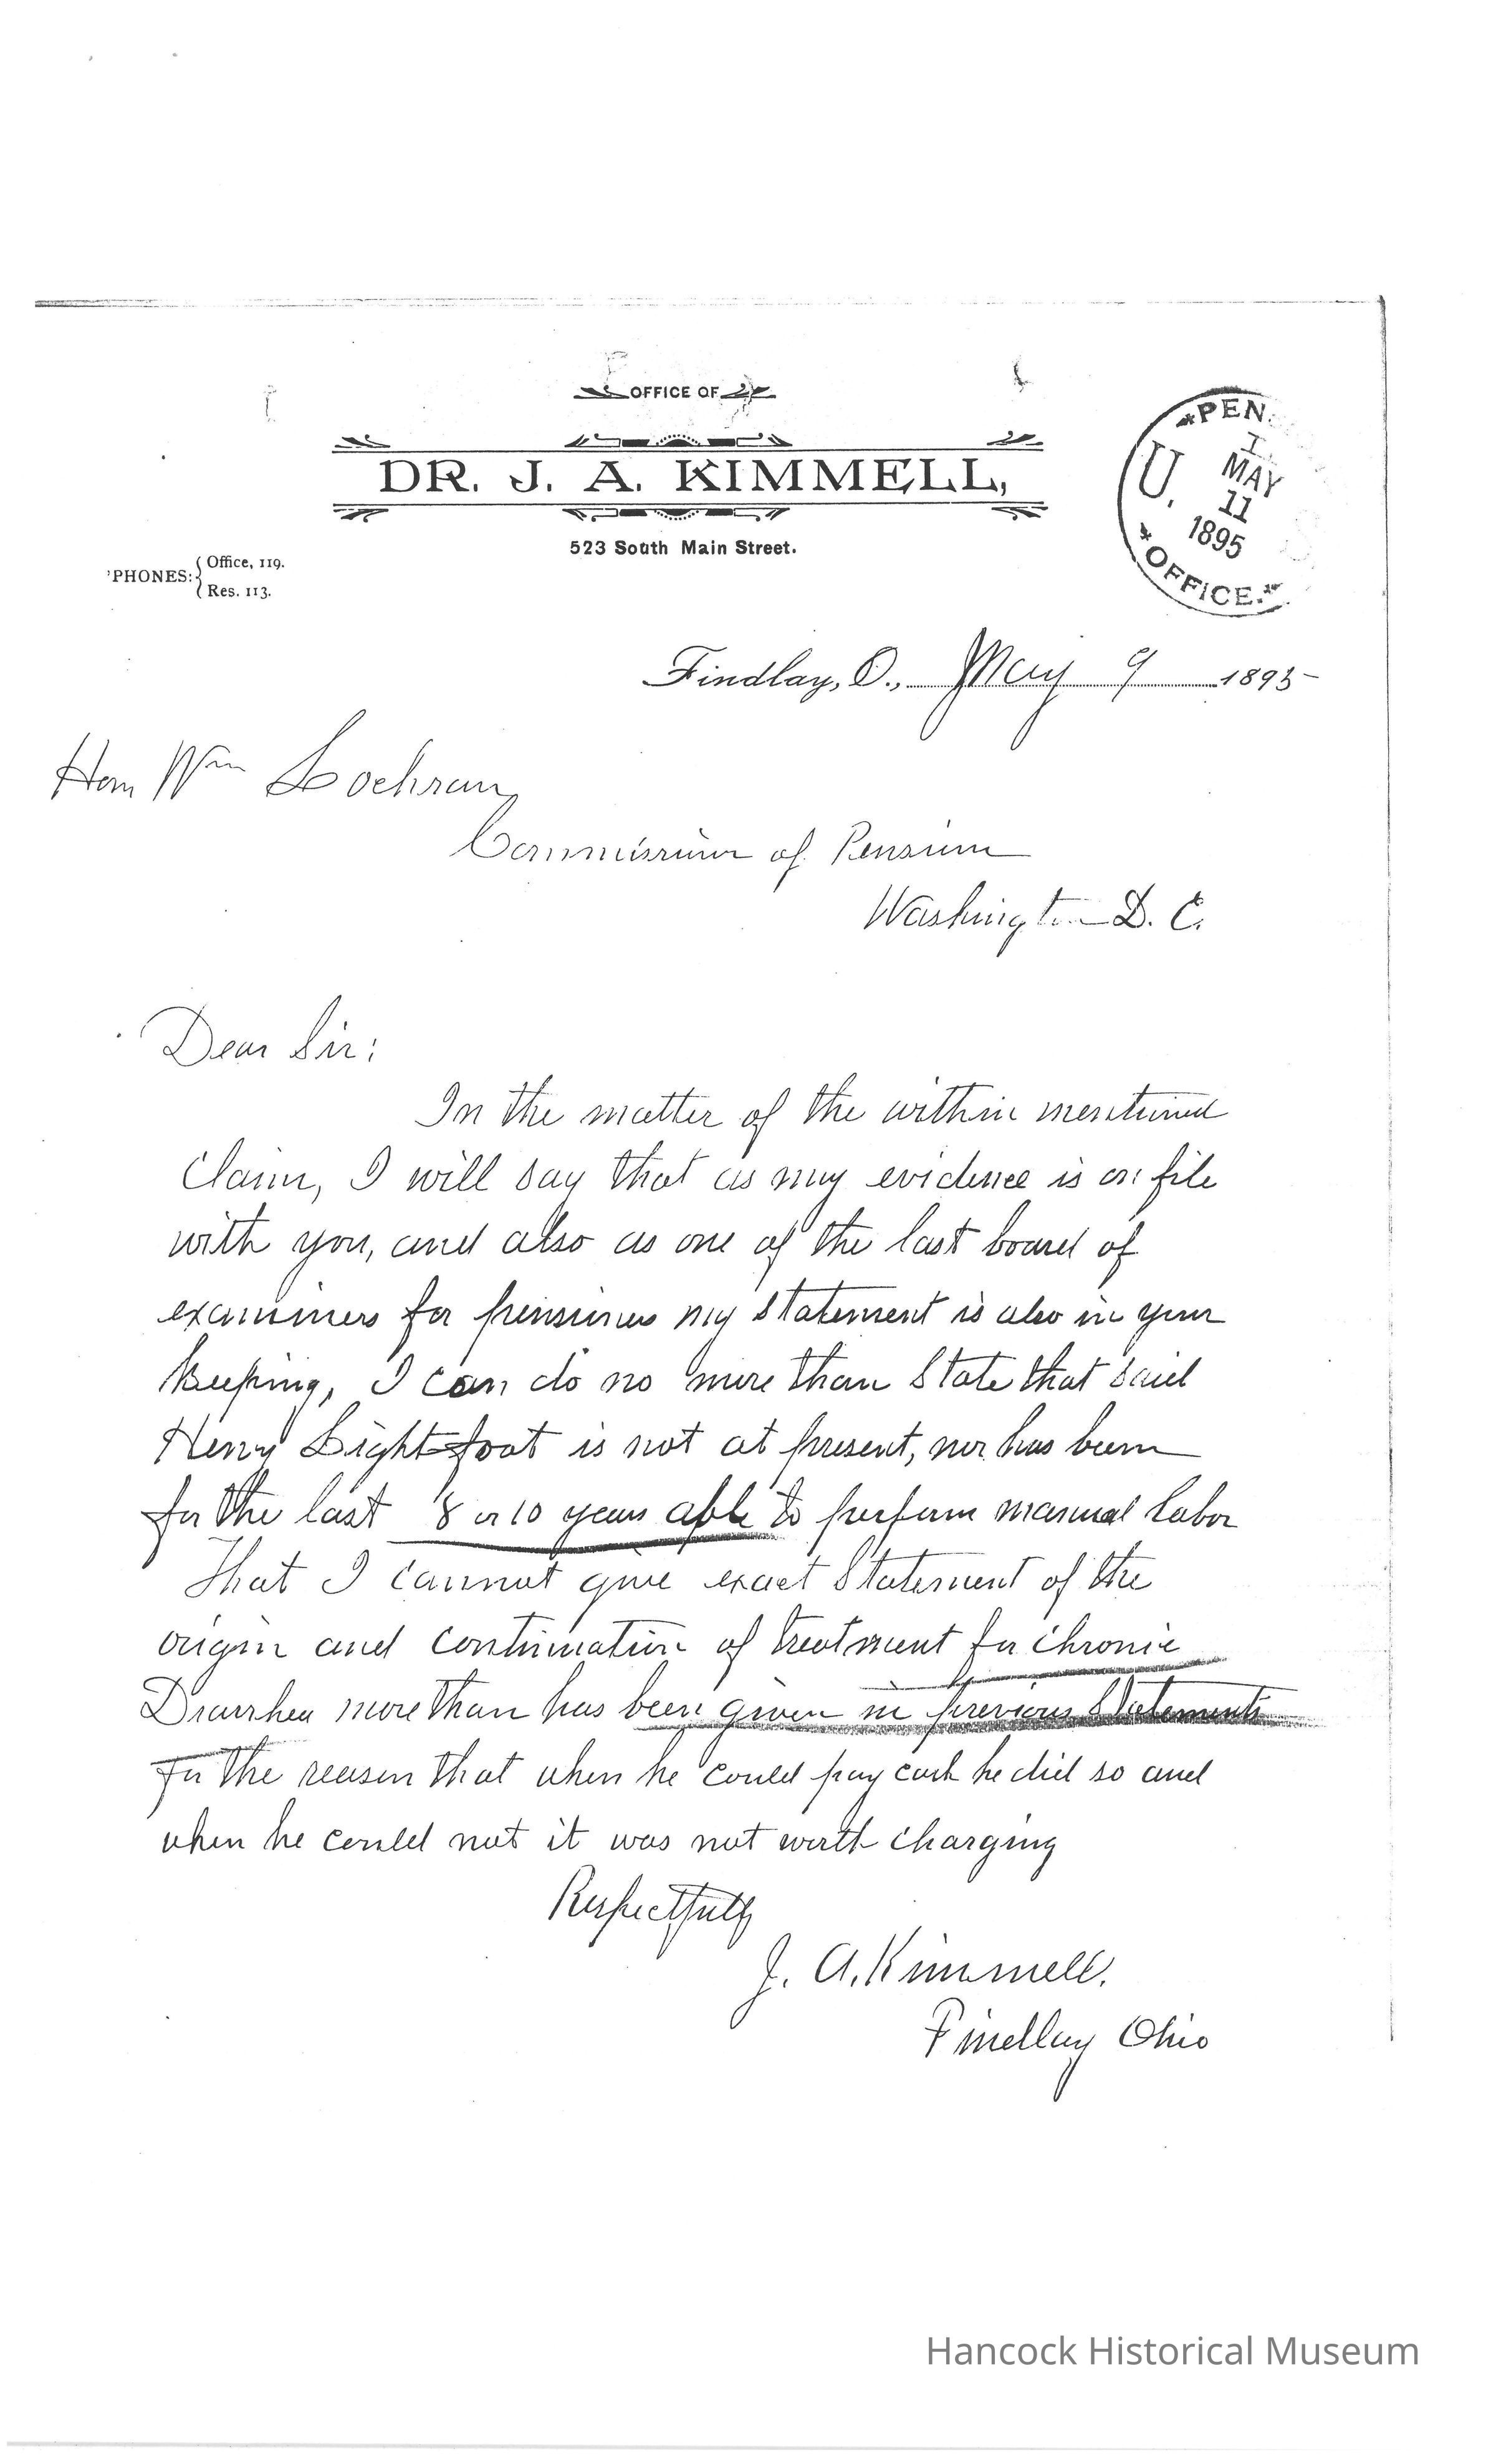 OFFICE OF
DR. J. A. KIMMELL,
523 South Main Street.
'PHONES: Office, 119.
Res. 113.
*PEN.
U. I.
MAY
11
1895
*OFFICE.*
Findlay, O., May 9 1895
Hon Wm Lochran
Commissioner of Pension
Washington D. C.
Dear Sir:
In the matter of the within mentioned
Claim, I will say that as my evidence is on file
with you, and also as one of the last board of
examiners for pensions my statement is also in your
keeping, I can do no more than State that said
Henry Lightfoot is not at present, nor has been
for the last 8 or 10 years able to perform manual labor
That I cannot give exact Statement of the
origin and continuation of treatment for chronic
Diarrhea more than has been given in previous Statements
For the reason that when he could pay cash he did so and
when he could not it was not worth charging
Respectfully
J. A. Kimmell.
Findlay Ohio
Hancock Historical Museum